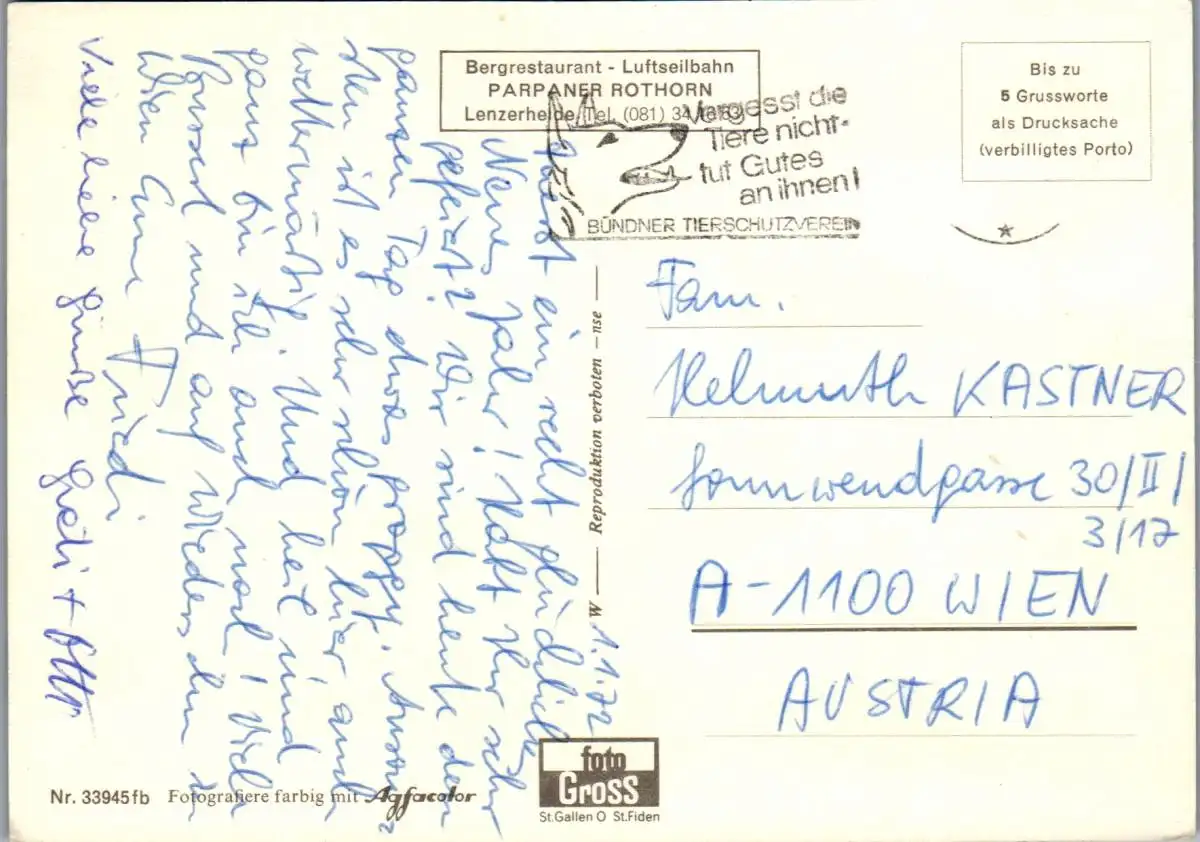 Bergrestaurant - Luftseilbahn
PARPANER ROTHORN
Lenzerheide, Tel. (081) 34
Vergesst die
Tiere nicht-
tut Gutes
an ihnen!
BÜNDNER TIERSCHUTZVEREIN
Bis zu
5 Grussworte
als Drucksache
(verbilligtes Porto)
1.1.72
ein recht glückliches
Neues Jahr! Habt Ihr sehr
gefeiert? Wir sind heute den
ganzen Tag etwas groggy. Anson-
sten ist es sehr schön hier auch
wettermäßig. Und heil und
ganz bin ich auch noch! Viele
Busserl und auf Wiedersehn in
Wien Eure Friedi
Viele liebe Grüße Gredi + Otto
Fam.
Helmuth KASTNER
Sonnwendgasse 30/II/
3/17
A-1100 WIEN
AUSTRIA
W — Reproduktion verboten — nse —
Nr. 33945fb Fotografiere farbig mit Agfacolor
foto
Gross
St.Gallen O St.Fiden